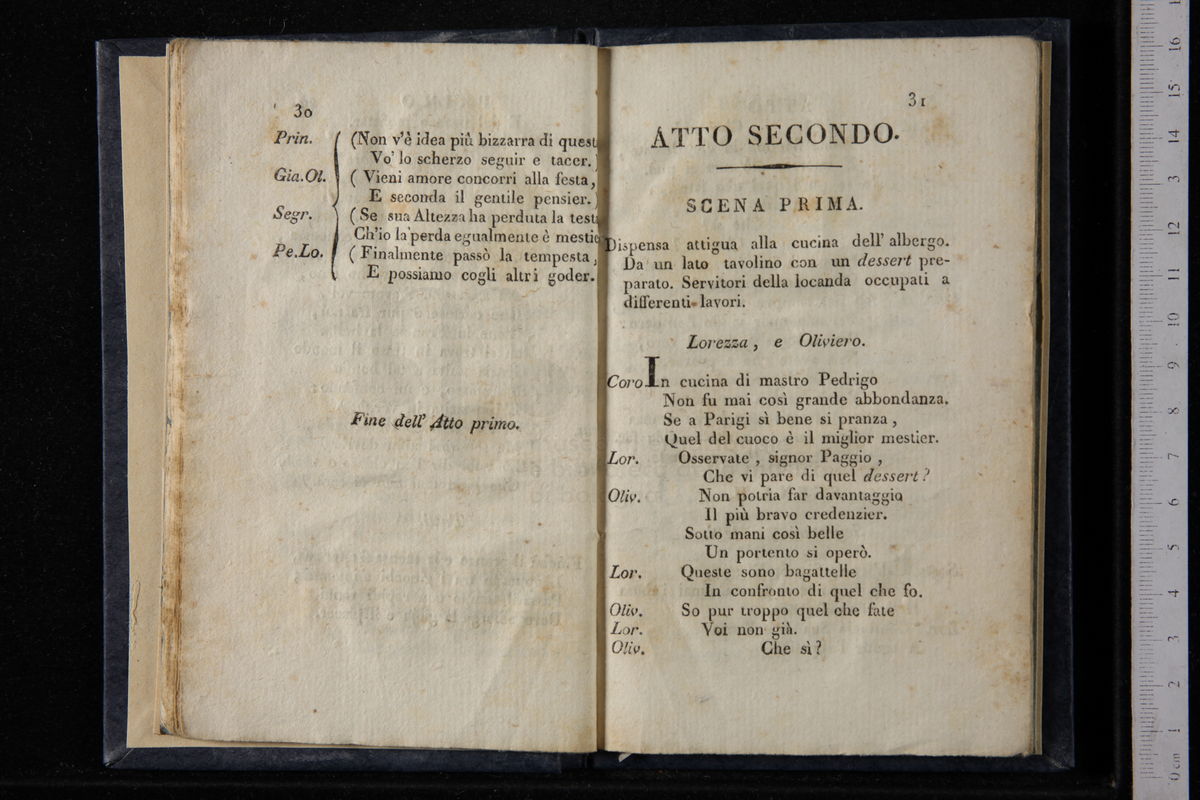 30
Prin. (Non v'è idea più bizzarra di quest
Vo' lo scherzo seguir e tacer.)
Gia.Ol. ( Vieni amore concorri alla festa,
E seconda il gentile pensier.)
Segr. ( Se sua Altezza ha perduta la test
Ch'io la perda egualmente è mestie
Pe.Lo. ( Finalmente passò la tempesta,
E possiamo cogli altri goder.
Fine dell' Atto primo.
31
ATTO SECONDO.
SCENA PRIMA.
Dispensa attigua alla cucina dell' albergo.
Da un lato tavolino con un dessert pre-
parato. Servitori della locanda occupati a
differenti lavori.
Lorezza, e Oliviero.
Coro In cucina di mastro Pedrigo
Non fu mai così grande abbondanza.
Se a Parigi sì bene si pranza,
Quel del cuoco è il miglior mestier.
Lor. Osservate, signor Paggio,
Che vi pare di quel dessert?
Oliv. Non potria far davantaggio
Il più bravo credenzier.
Sotto mani così belle
Un portento si operò.
Lor. Queste sono bagattelle
In confronto di quel che fo.
Oliv. So pur troppo quel che fate
Lor. Voi non già.
Oliv. Che sì?
0 cm 1 2 3 4 5 6 7 8 9 10 11 12 13 14 15 16